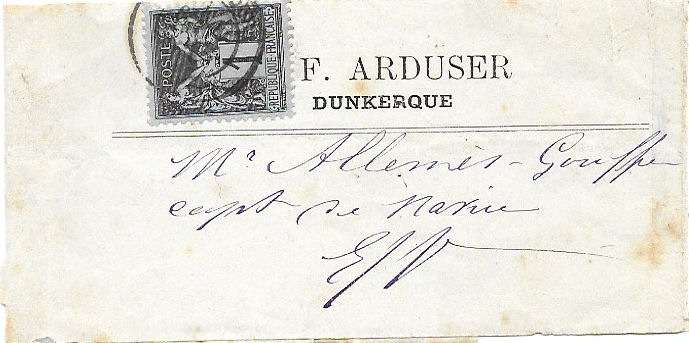 POSTES
1
REPUBLIQUE FRANCAISE
F. ARDUSER
DUNKERQUE
Mr Allemès-Gouffe
capt de Navire
E/V